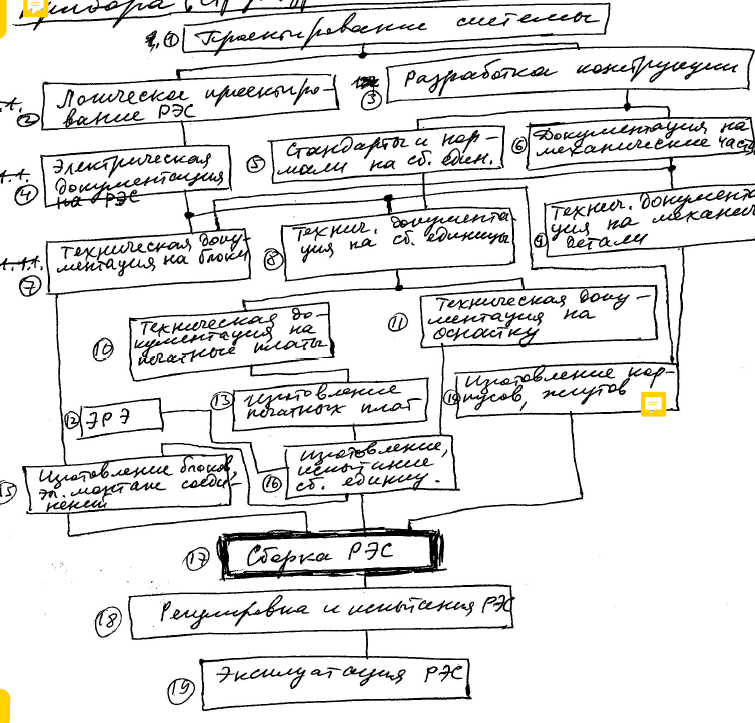 Прибора
1 Проектирование системы
2 Логическое проектиро-
вание РЭС
3 Разработка конструкции
4 Электрическая
документация
на РЭС
5 Стандарты и нор-
мали на сб. един.
6 Документация на
механические част
7 Техническая доку-
ментация на блоки
8 Технич. документа-
ция на сб. единицы
9 Технич. документа
ция на механич
детали
10 Техническая до-
кументация на
печатные платы
11 Техническая доку-
ментация на
оснастку
12 ЭРЭ
13 Изготовление
печатных плат
Изготовление кор-
пусов, жгутов
15 Изготовление блоков,
эл. монтаж соеди-
нений
16 Изготовление,
испытание
сб. единиц.
17 Сборка РЭС
18 Регулировка и испытания РЭС
19 Эксплуатация РЭС